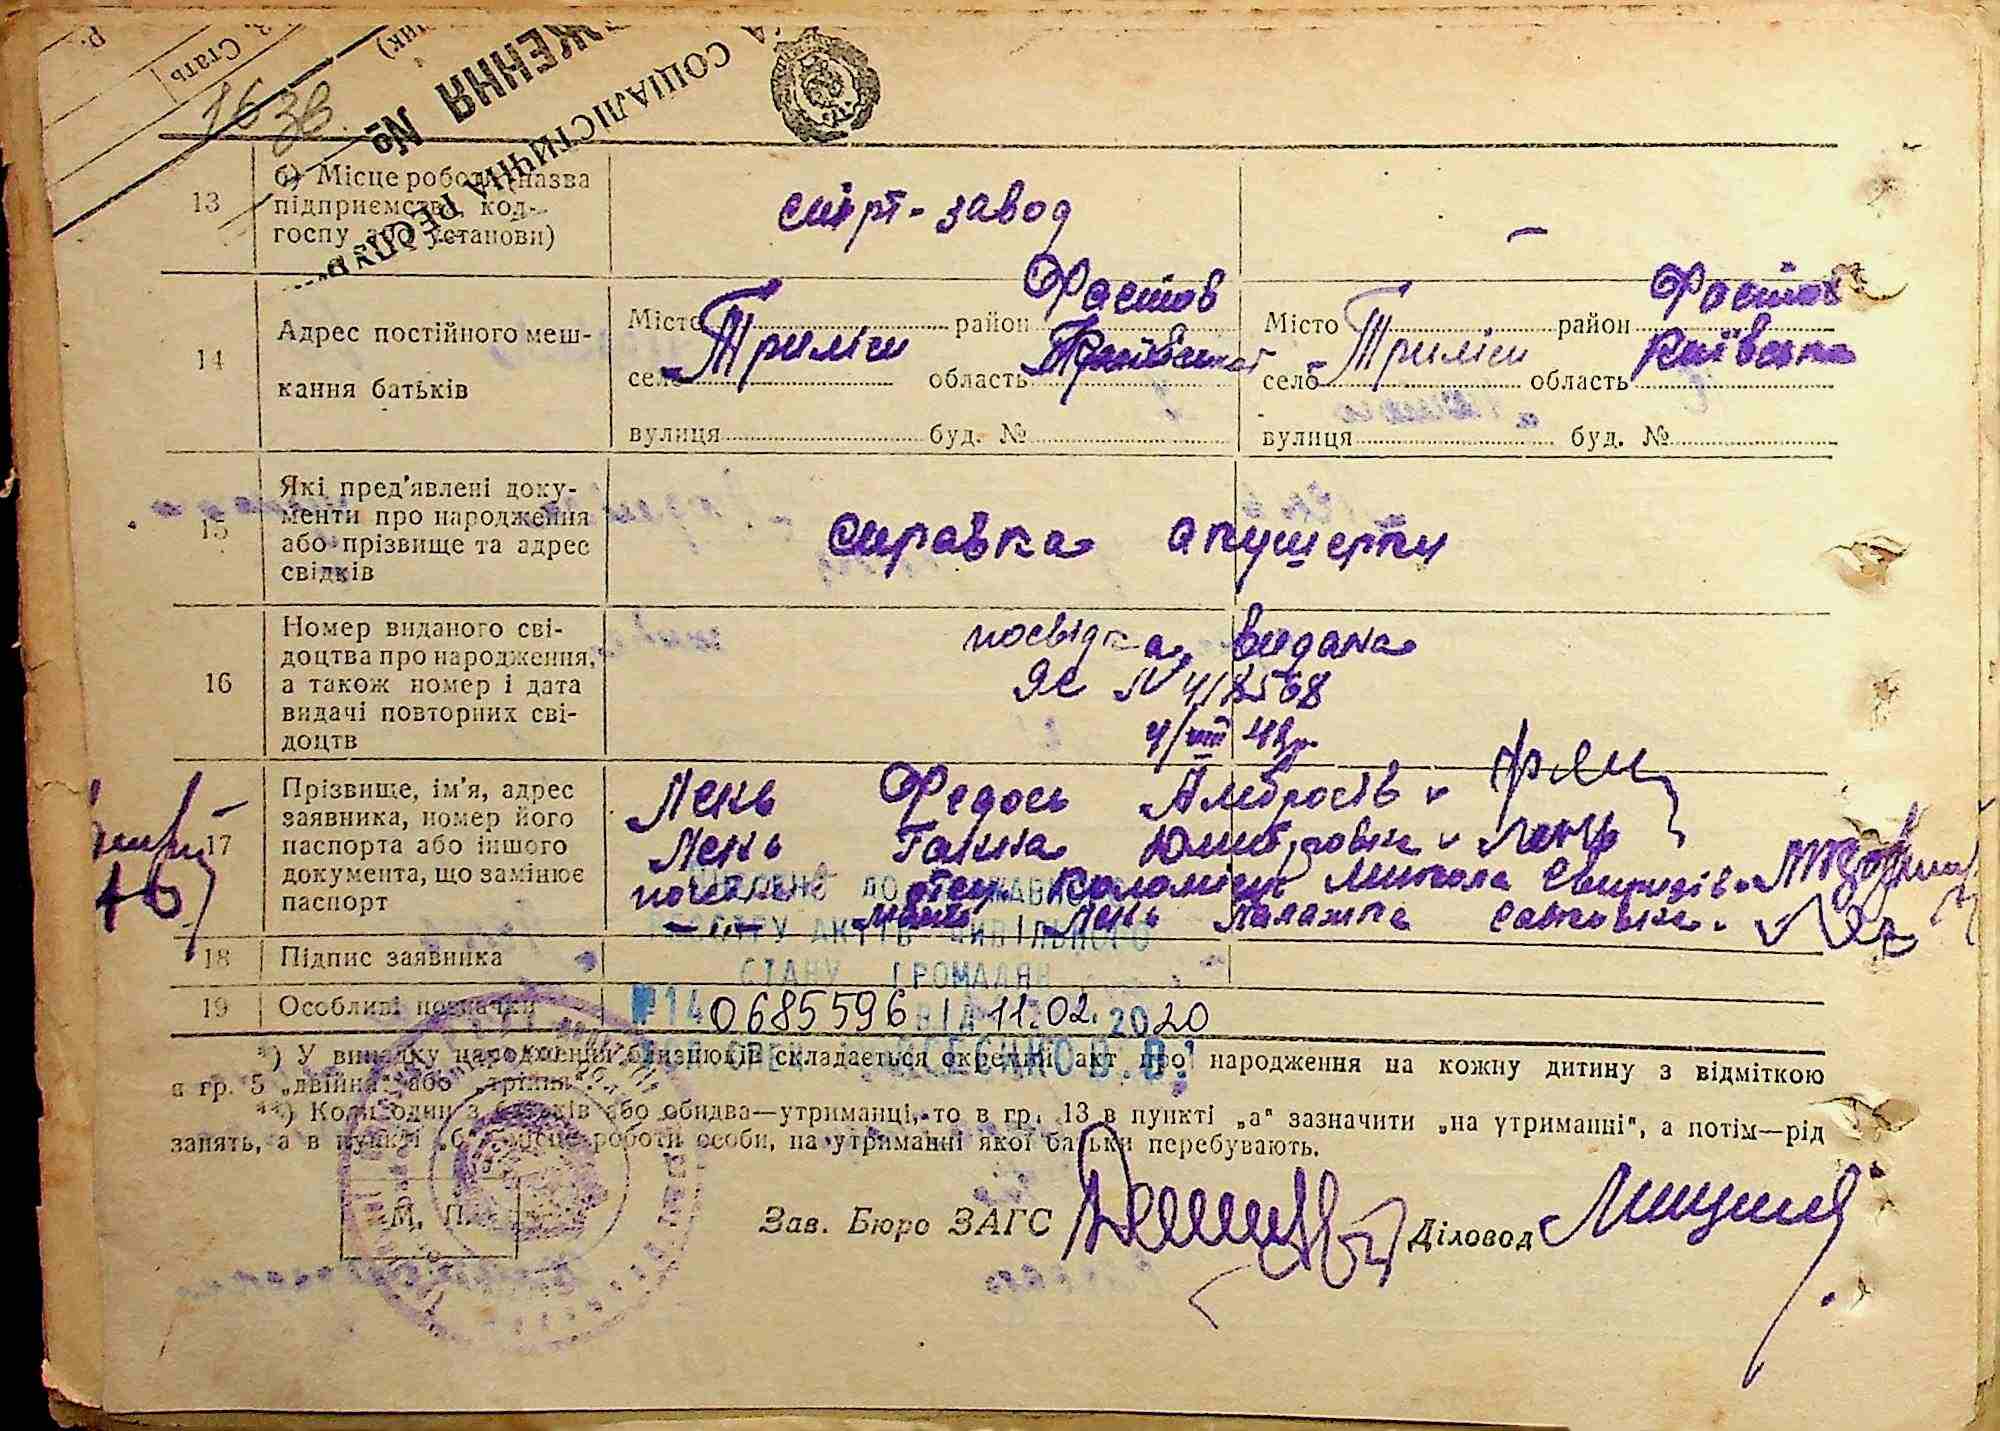 р.
3. Стать
ЖЕННЯ №
СОЦІАЛІСТИЧНА РЕСПУБ
163в
13
б) Місце роботи (назва
підприємства, кол-
госпу або установи)
спірт-завод
—
14
Адрес постійного меш-
кання батьків
Місто район Фастов
село Триліси область
вулиця буд. №
Місто район Фастов
село Триліси область Київська
вулиця буд. №
15
Які пред'явлені доку-
менти про народження
або прізвище та адрес
свідків
справка акушерки
16
Номер виданого сві-
доцтва про народження,
а також номер і дата
видачі повторних сві-
доцтв
посвідка видана
ЯС №
17
Прізвище, ім'я, адрес
заявника, номер його
паспорта або іншого
документа, що замінює
паспорт
Лень Федось Амбросів
Лень Ганна Юмитровна Лень
Коломієць Микола Свиридів
мати Лень Палажка Савковна
18
Підпис заявника
РЕЄСТРУ АКТІВ ЦИВІЛЬНОГО
СТАНУ ГРОМАДЯН
19
Особливі позначки
№14 0685596 ВІД 11.02.2020
*) У випадку народження близнюків складається окремий акт про народження на кожну дитину з відміткою
в гр. 5 „двійна“ або „трійня“.
**) Коли один з батьків або обидва—утриманці, то в гр. 13 в пункті „а“ зазначити „на утриманні“, а потім—рід
занять, а в пункті „б“ місце роботи особи, на утриманні якої батьки перебувають.
М. П.
Зав. Бюро ЗАГС
Діловод